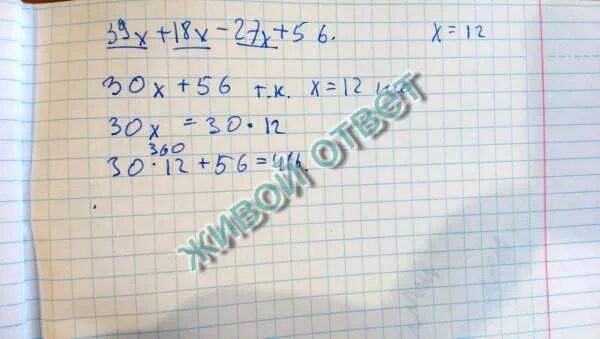 39x + 18x - 27x + 56. x = 12
30x + 56 т.к. x = 12
30x = 30 · 12
360
30 · 12 + 56 = 416.
ЖИВОЙ ОТВЕТ